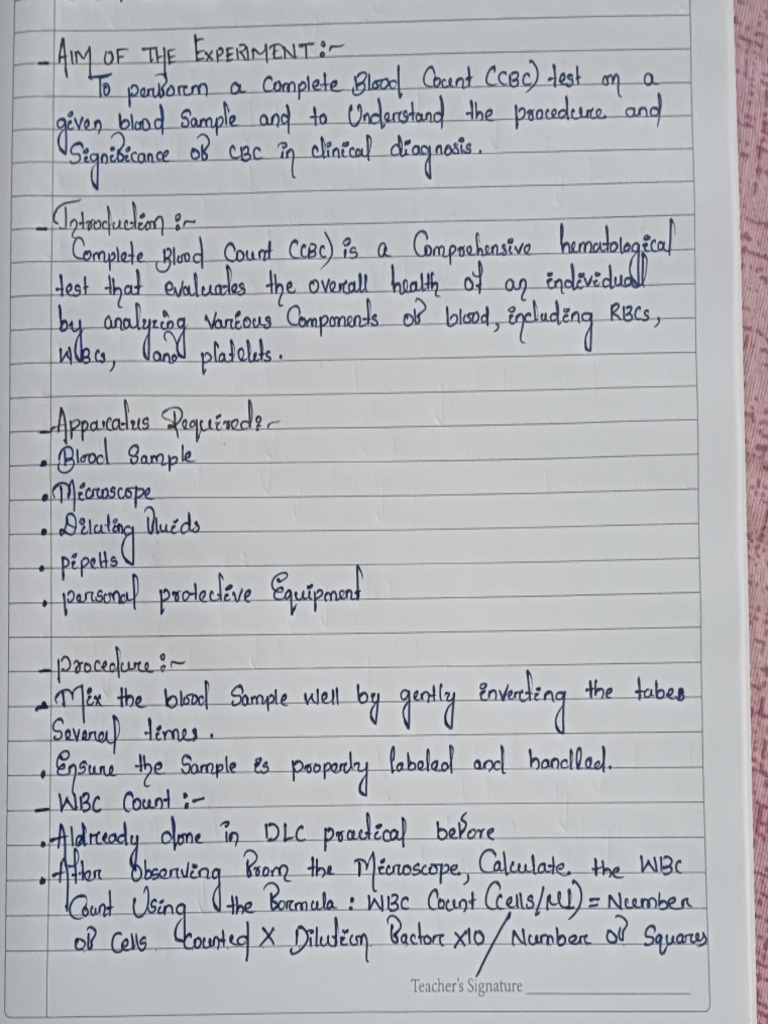 - AIM OF THE EXPERIMENT:-
To perform a Complete Blood Count (CBC) test on a
given blood Sample and to Understand the procedure and
Significance of CBC in clinical diagnosis.
- Introduction :-
Complete Blood Count (CBC) is a Comprehensive hematological
test that evaluates the overall health of an individual
by analyzing various Components of blood, including RBCs,
WBCs, and platelets.
- Apparatus Required:-
• Blood Sample
• Microscope
• Diluting fluids
• pipetts
• personal protective Equipment
- procedure :-
• Mix the blood Sample well by gently inverting the tubes
Several times.
• Ensure the Sample is properly labeled and handled.
- WBC Count :-
• Aldready done in DLC practical before
• After Observing from the Microscope, Calculate the WBC
Count Using the formula : WBC Count (cells/µl) = Number
of Cells Counted X Dilution factor x10 / Number of Squares
Teacher's Signature